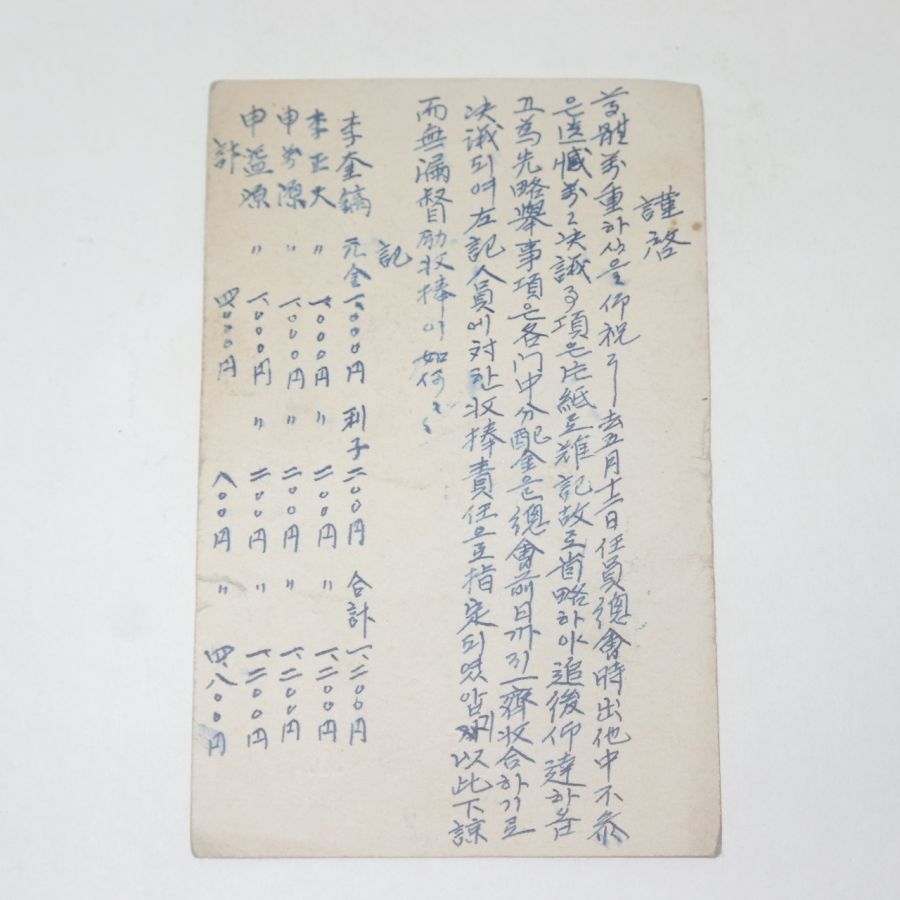 謹啓
尊體萬重하심을 仰祝耳 去五月十二日 任員總會時出他中不參
은遺憾萬萬 決議事項은片紙로難記故로省略하야追後仰達하옵
고爲先略擧事項은各門中分配金은總會前日까지一齊收合하기로
決議되여左記人員에対한收捧責任으로指定되엿압기以此下諒
而無漏督励收捧이如何
記
李奎鎬 元金 一、〇〇〇円 利子 二〇〇円 合計 一、二〇〇円
李正大 〃 一、〇〇〇円 〃 二〇〇円 〃 一、二〇〇円
申源 〃 一、〇〇〇円 〃 二〇〇円 〃 一、二〇〇円
申益源 〃 一、〇〇〇円 〃 二〇〇円 〃 一、二〇〇円
計 四、〇〇〇円 八〇〇円 〃 四、八〇〇円